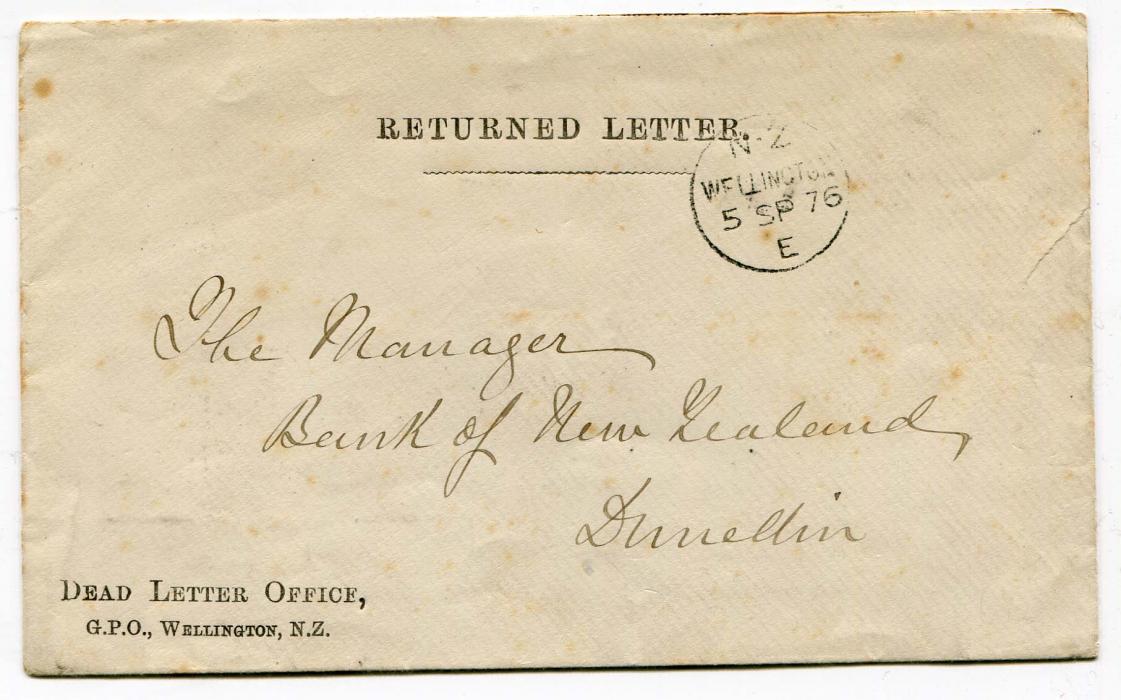 RETURNED LETTER.
N·Z
WELLINGTON
5 SP 76
E
The Manager
Bank of New Zealand,
Dunedin
DEAD LETTER OFFICE,
G.P.O., WELLINGTON, N.Z.